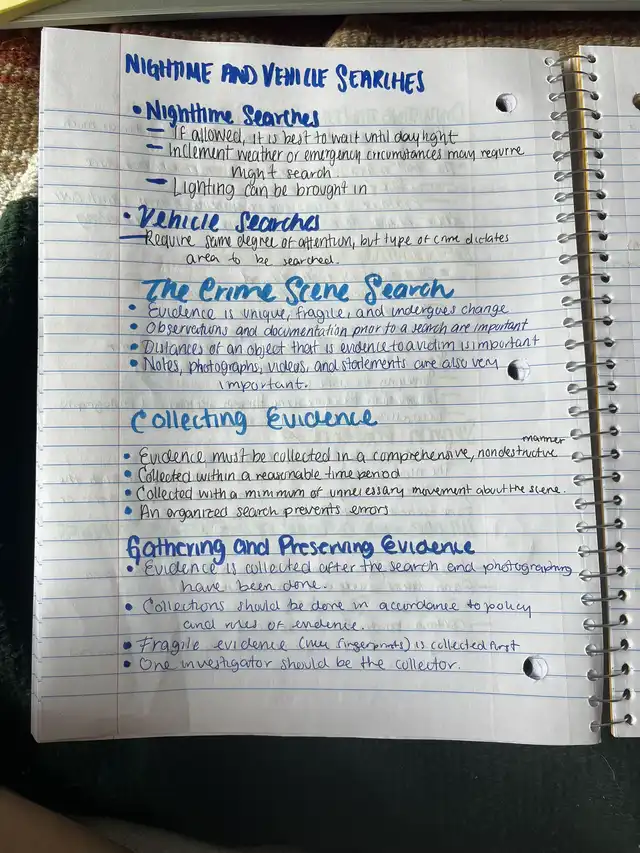 NIGHTIME AND VEHICLE SEARCHES
• Nighttime Searches
— If allowed, it is best to wait until daylight
— Inclement weather or emergency circumstances may require
night search
— Lighting can be brought in
• Vehicle Searches
— Require same degree of attention, but type of crime dictates
area to be searched.
The Crime Scene Search
• Evidence is unique, fragile, and undergoes change
• Observations and documentation prior to a search are important
• Distances of an object that is evidence to a victim is important
• Notes, photographs, videos, and statements are also very
important.
Collecting Evidence
manner
• Evidence must be collected in a comprehensive, nondestructive
• Collected within a reasonable time period
• Collected with a minimum of unnecessary movement about the scene.
• An organized search prevents errors
Gathering and Preserving Evidence
• Evidence is collected after the search and photographing
have been done.
• Collections should be done in accordance to policy
and rules of evidence.
• Fragile evidence (like fingerprints) is collected first
• One investigator should be the collector.